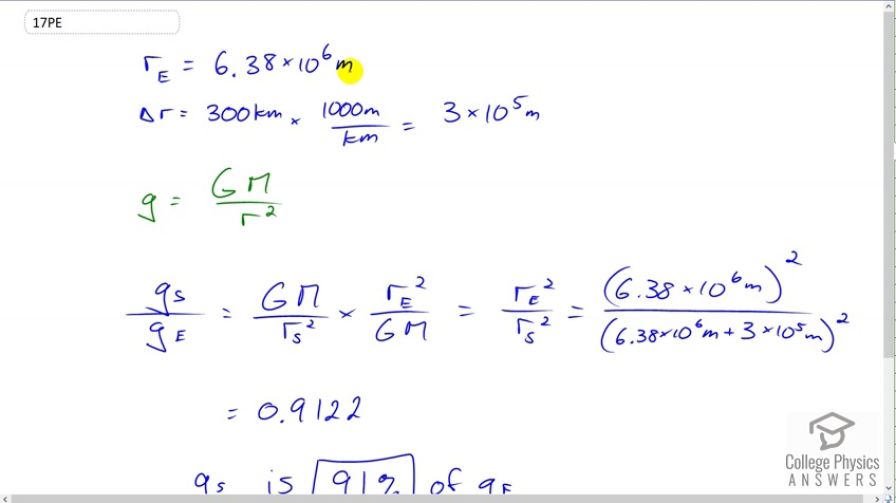 17PE
r_E = 6.38 × 10^6 m
Δr = 300 km × 1000m/km = 3 × 10^5 m
g = GM/r^2
g_S/g_E = GM/r_S^2 × r_E^2/GM = r_E^2/r_S^2 = (6.38 × 10^6 m)^2/(6.38 × 10^6 m + 3 × 10^5 m)^2
= 0.9122
g_S is 91% of g_E
College Physics
ANSWERS